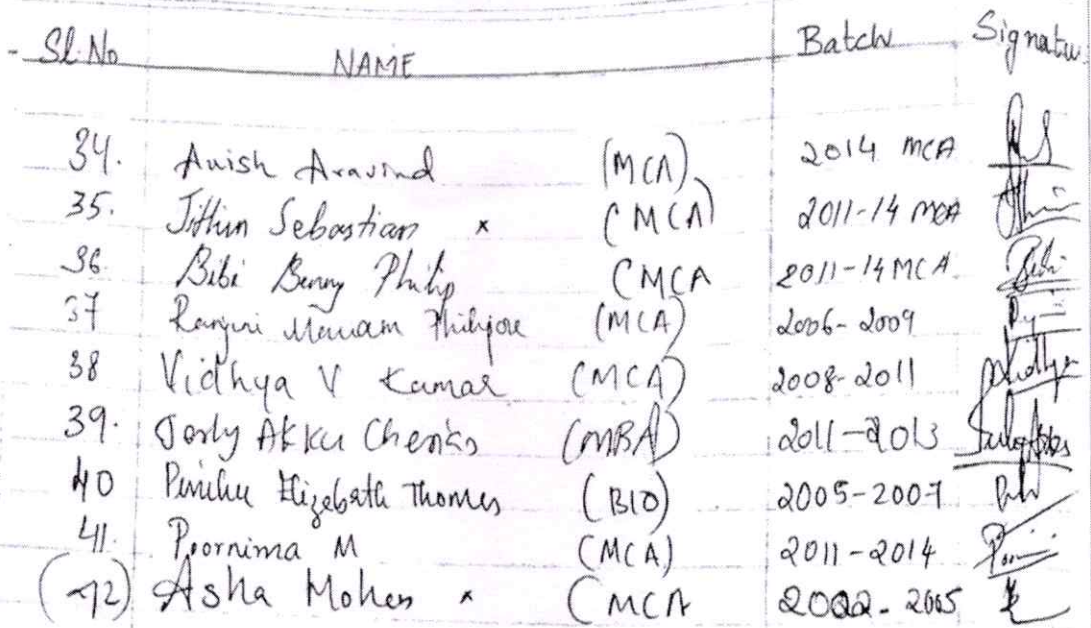 Sl. No NAME Batch Signatu
34. Anish Aravind (MCA) 2014 MCA
35. Jithin Sebastian x (MCA) 2011-14 MCA
36 Bibi Benny Philip (MCA 2011-14 MCA
37 Ranjini Mariam (MCA) 2006-2009
38 Vidhya V Kumar (MCA) 2008-2011 Vidhya
39. Akku (MBA) 2011-2013
40 Elizebath Thomas (BIO) 2005-2007
41. Poornima M (MCA) 2011-2014
(42) Asha Mohan x (MCA 2002-2005